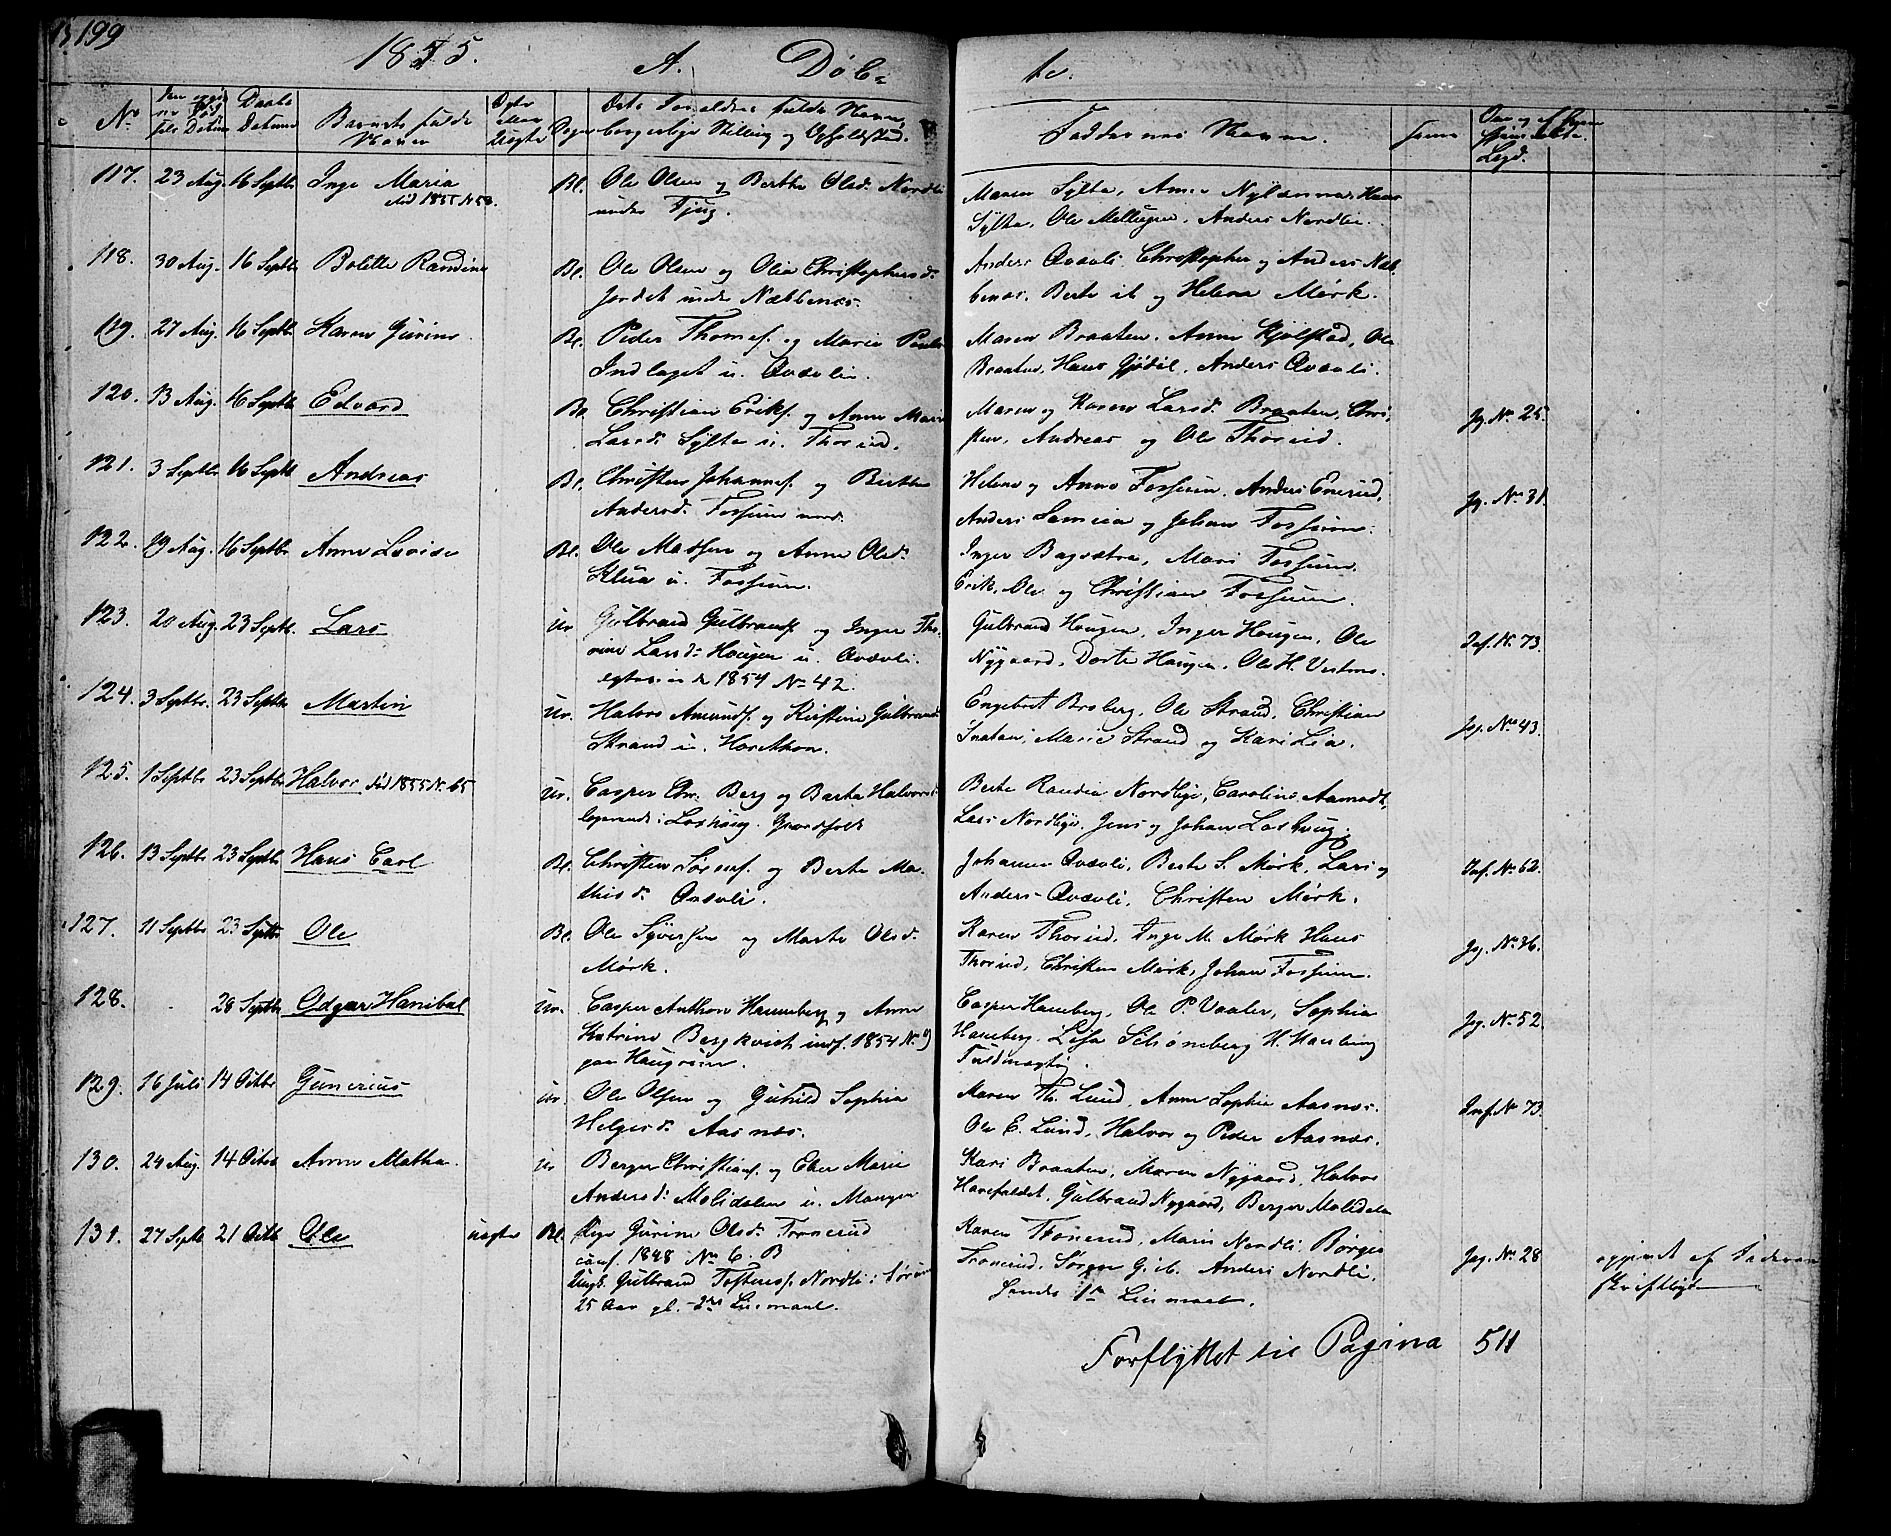 199
1855.
A. Døb-
te.
No
Daabs Datum
Barnets fulde Navn
Faddernes Navne.
117. 23 Aug. 16 Septbr Inge Maria Bl. Ole Olsen og Berthe Olsd. Nordli
under Fjug.
Maren Sylta, Anne
Sylta, Ole Mellugen, Anders Nordlie.
118. 30 Aug. 16 Septbr Bolette Randine Bl. Ole Olsen og Olia Christophersd.
Jordet under Næbbenæs.
Anders Qvævli, Christopher og Anders Næb-
benæs, Berte ib og Helena Mørk.
119. 27 Aug. 16 Septbr Karen Gurine Bl. Peder Thomes. og Marie
Indlaget u. Qvævlie.
Maren Braaten, Anne Kjølstad, Ole
Braaten, Hans Gjødøl, Anders Qvævli.
120. 13 Aug. 16 Septbr Edvard Bl. Christian Eriks. og Anne Marie
Larsd. Sylta u. Thorud.
Maren og Karen Larsd. Braaten, Chri-
sten, Andreas og Ole Thorud.
Jg. No 25.
121. 3 Septbr 16 Septbr Andreas Bl. Christen Johannes. og Birthe
Andersd. Fossum nord.
Helene og Anne Fossum, Anders Enerud,
Anders og Johan Fossum.
Jg. No 31.
122. 19 Aug. 16 Septbr Anne Lovise Bl. Ole Madsen og Anne Olsd.
u. Fossum.
Inger Bagsætra, Mari Fossum,
Erik, Ole og Christian Fossum.
123. 20 Aug. 23 Septb. Lars Ur Gulbrand Gulbrands. og Inger Tho-
rine Larsd. Hougen u. Qvævli.
1854 No 42.
Gulbrand Hougen, Inger Hougen, Ole
Nygaard, Dorte Haugen, Ole H.
Inf. No 73.
124. 3 Septbr. 23 Septbr Martin Ur. Halvor Amunds. og Kirstine Gulbrandsd.
Strand u.
Engebret Broberg, Ole Strand, Christian
Marie Strand og Kari Lia.
Jg. No 43.
125. 1 Septbr 23 Septbr Halvor død 1855 No 65 Ur. Casper Chr. Berg og Berte Halvorsd.
logerende i Loshaug. Gaardfolk
Berte Randie Nordlige, Caroline Aamodt,
Lars Nordlige, Jens og Johan Loshaug
126. 13 Septbr 23 Septbr Hans Carl Bl. Christen Sørens. og Berte Ma-
thisd. Qvævli.
Johannes Qvævli, Berte S. Mørk, Lars og
Anders Qvævli, Christen Mørk.
Inf. No 62.
127. 11 Septbr 23 Septbr Ole Bl. Ole Syversen og Marte Olsd.
Mørk.
Karen Thorud, Inge M. Mørk Hans
Thorud, Christen Mørk, Johan Fossum.
Jg. No 36.
128. 28 Septbr Edgar Hanibal Ur. Casper Anthon Hanneberg og Anne
Katrine Bergkvist indf. 1854 No
paa
Casper Hanneberg, Ole P. Vaaler, Sophia
Hanneberg, Lisa Schøneberg H. Hansling
Fuldmægtig
Jg. No 52.
129. 16 Juli 14 Octbr Gunerius Ur. Ole Olsen og Guhild Sophia
Helgesd. Aasnæs.
Maren Th. Lund, Anne Sophie Aasnæs.
Ole E. Lund, Halvor og Peder Aasnæs.
Inf. No 73.
130. 24 Aug. 14 Octbr Anne Mathea. Ur Berger Christians. og Else Marie
Andersd. Molidalen u. Mangen
Kari Braaten, Maren Nygaard, Halvor
Gulbrand Nygaard, Berger Molidalen
131. 27 Septb 21 Octb Ole uægte Bl. Pige Gurine Olsd. Fronerud
conf. 1848 No 6. B
Ungk. Gulbrand Tostens. Nordli i Sørum
25 Aar gl. - 2det Leiermaal.
Karen Thonerud, Marie Nordli, Børger
Fronerud, Søren G. ib. Anders Nordli.
1ste Leiermaal.
Jg. No 28
opgivet af Faderen
skriftligt
Forflyttet til Pagina 511